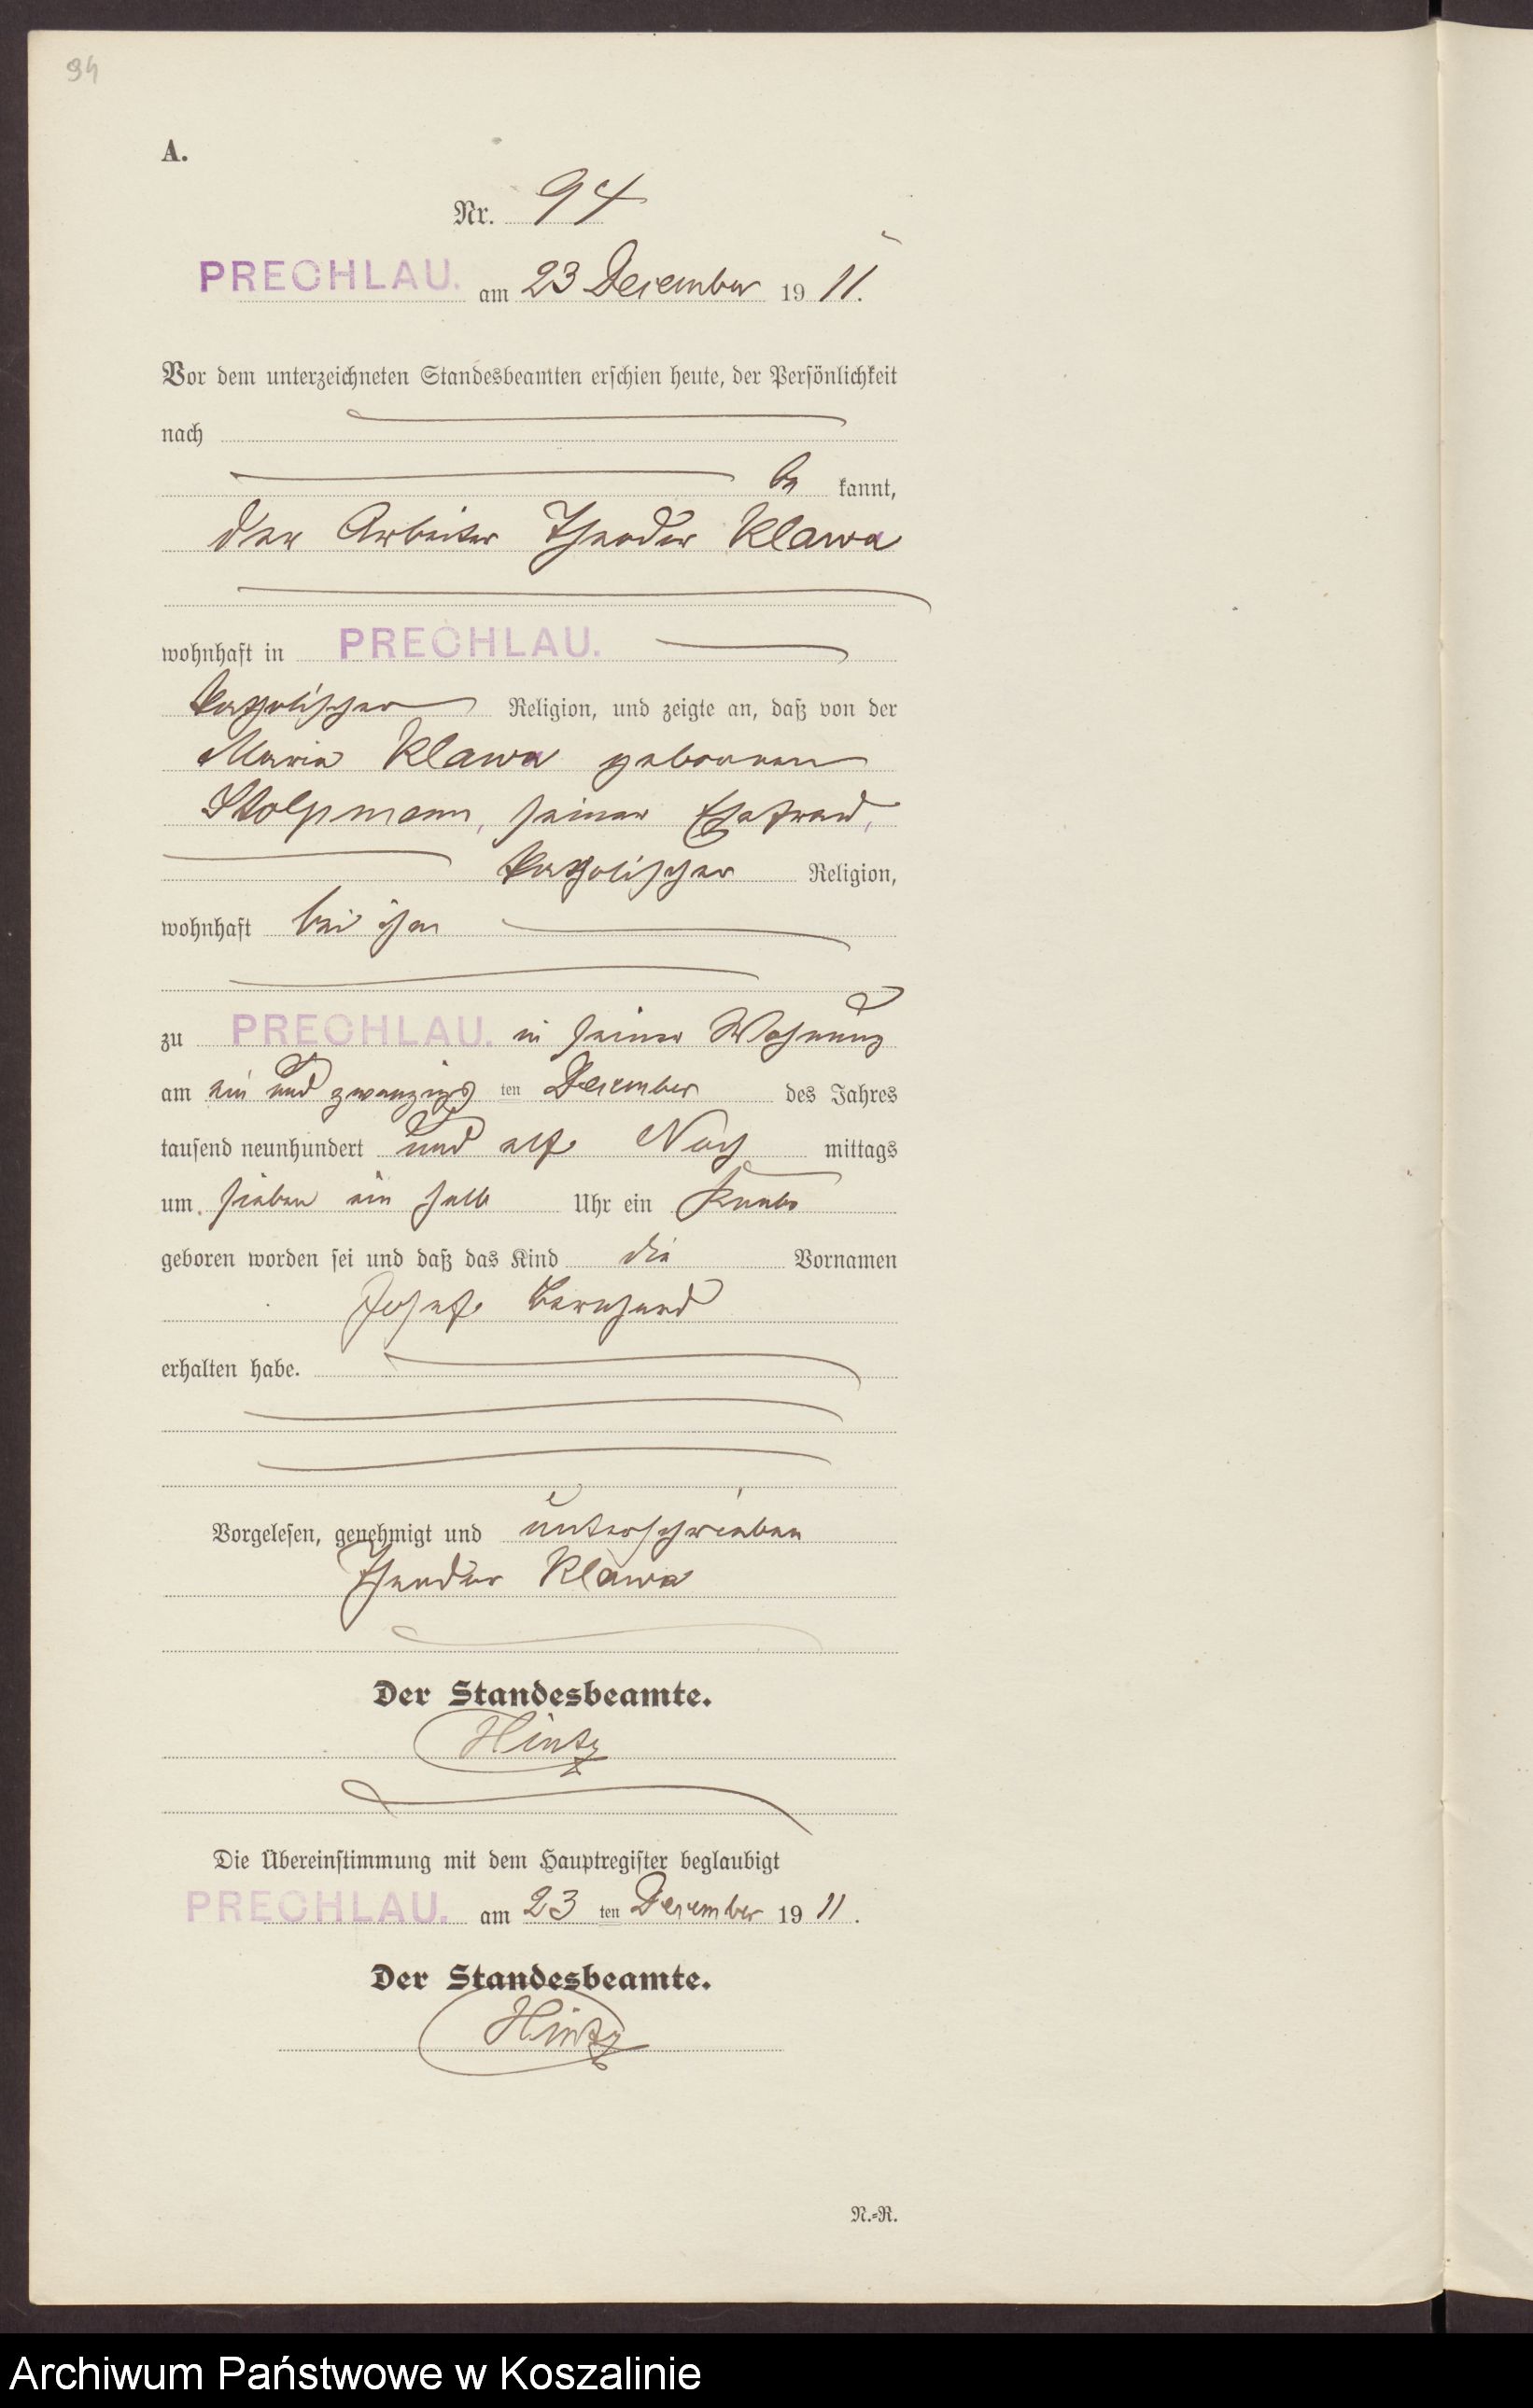 94
A.
Nr. 94
PRECHLAU. am 23 Dezember 19 11.
Vor dem unterzeichneten Standesbeamten erschien heute, der Persönlichkeit
nach
be kannt,
der Arbeiter Theodor Klawa
wohnhaft in PRECHLAU.
katholischer Religion, und zeigte an, daß von der
Maria Klawa geborenen
Stolpmann, seiner Ehefrau,
katholischer Religion,
wohnhaft bei ihm
zu PRECHLAU. in seiner Wohnung
am ein und zwanzigs ten Dezember des Jahres
tausend neunhundert und elf Nach mittags
um sieben ein halb Uhr ein Knabe
geboren worden sei und daß das Kind die Vornamen
Josef Bernhard
erhalten habe.
Vorgelesen, genehmigt und unterschrieben
Theodor Klawa
Der Standesbeamte.
Hintz
Die Übereinstimmung mit dem Hauptregister beglaubigt
PRECHLAU. am 23 ten Dezember 19 11.
Der Standesbeamte.
Hintz
N.=R.
Archiwum Państwowe w Koszalinie